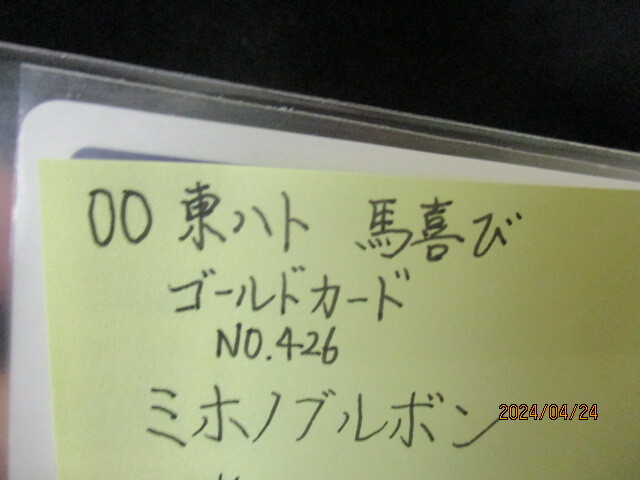 00 東ハト 馬喜び
ゴールドカード
NO.426
ミホノブルボン
2024/04/24